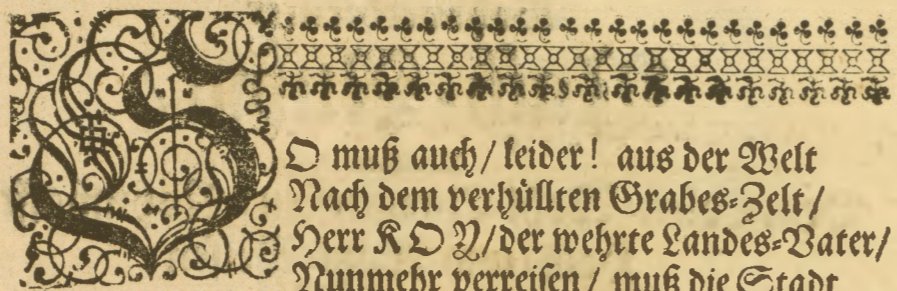 SO muß auch / leider! aus der Welt
Nach dem verhüllten Grabes-Zelt /
Herr KOY / der wehrte Landes-Vater /
Nunmehr verreisen / muß die Stadt